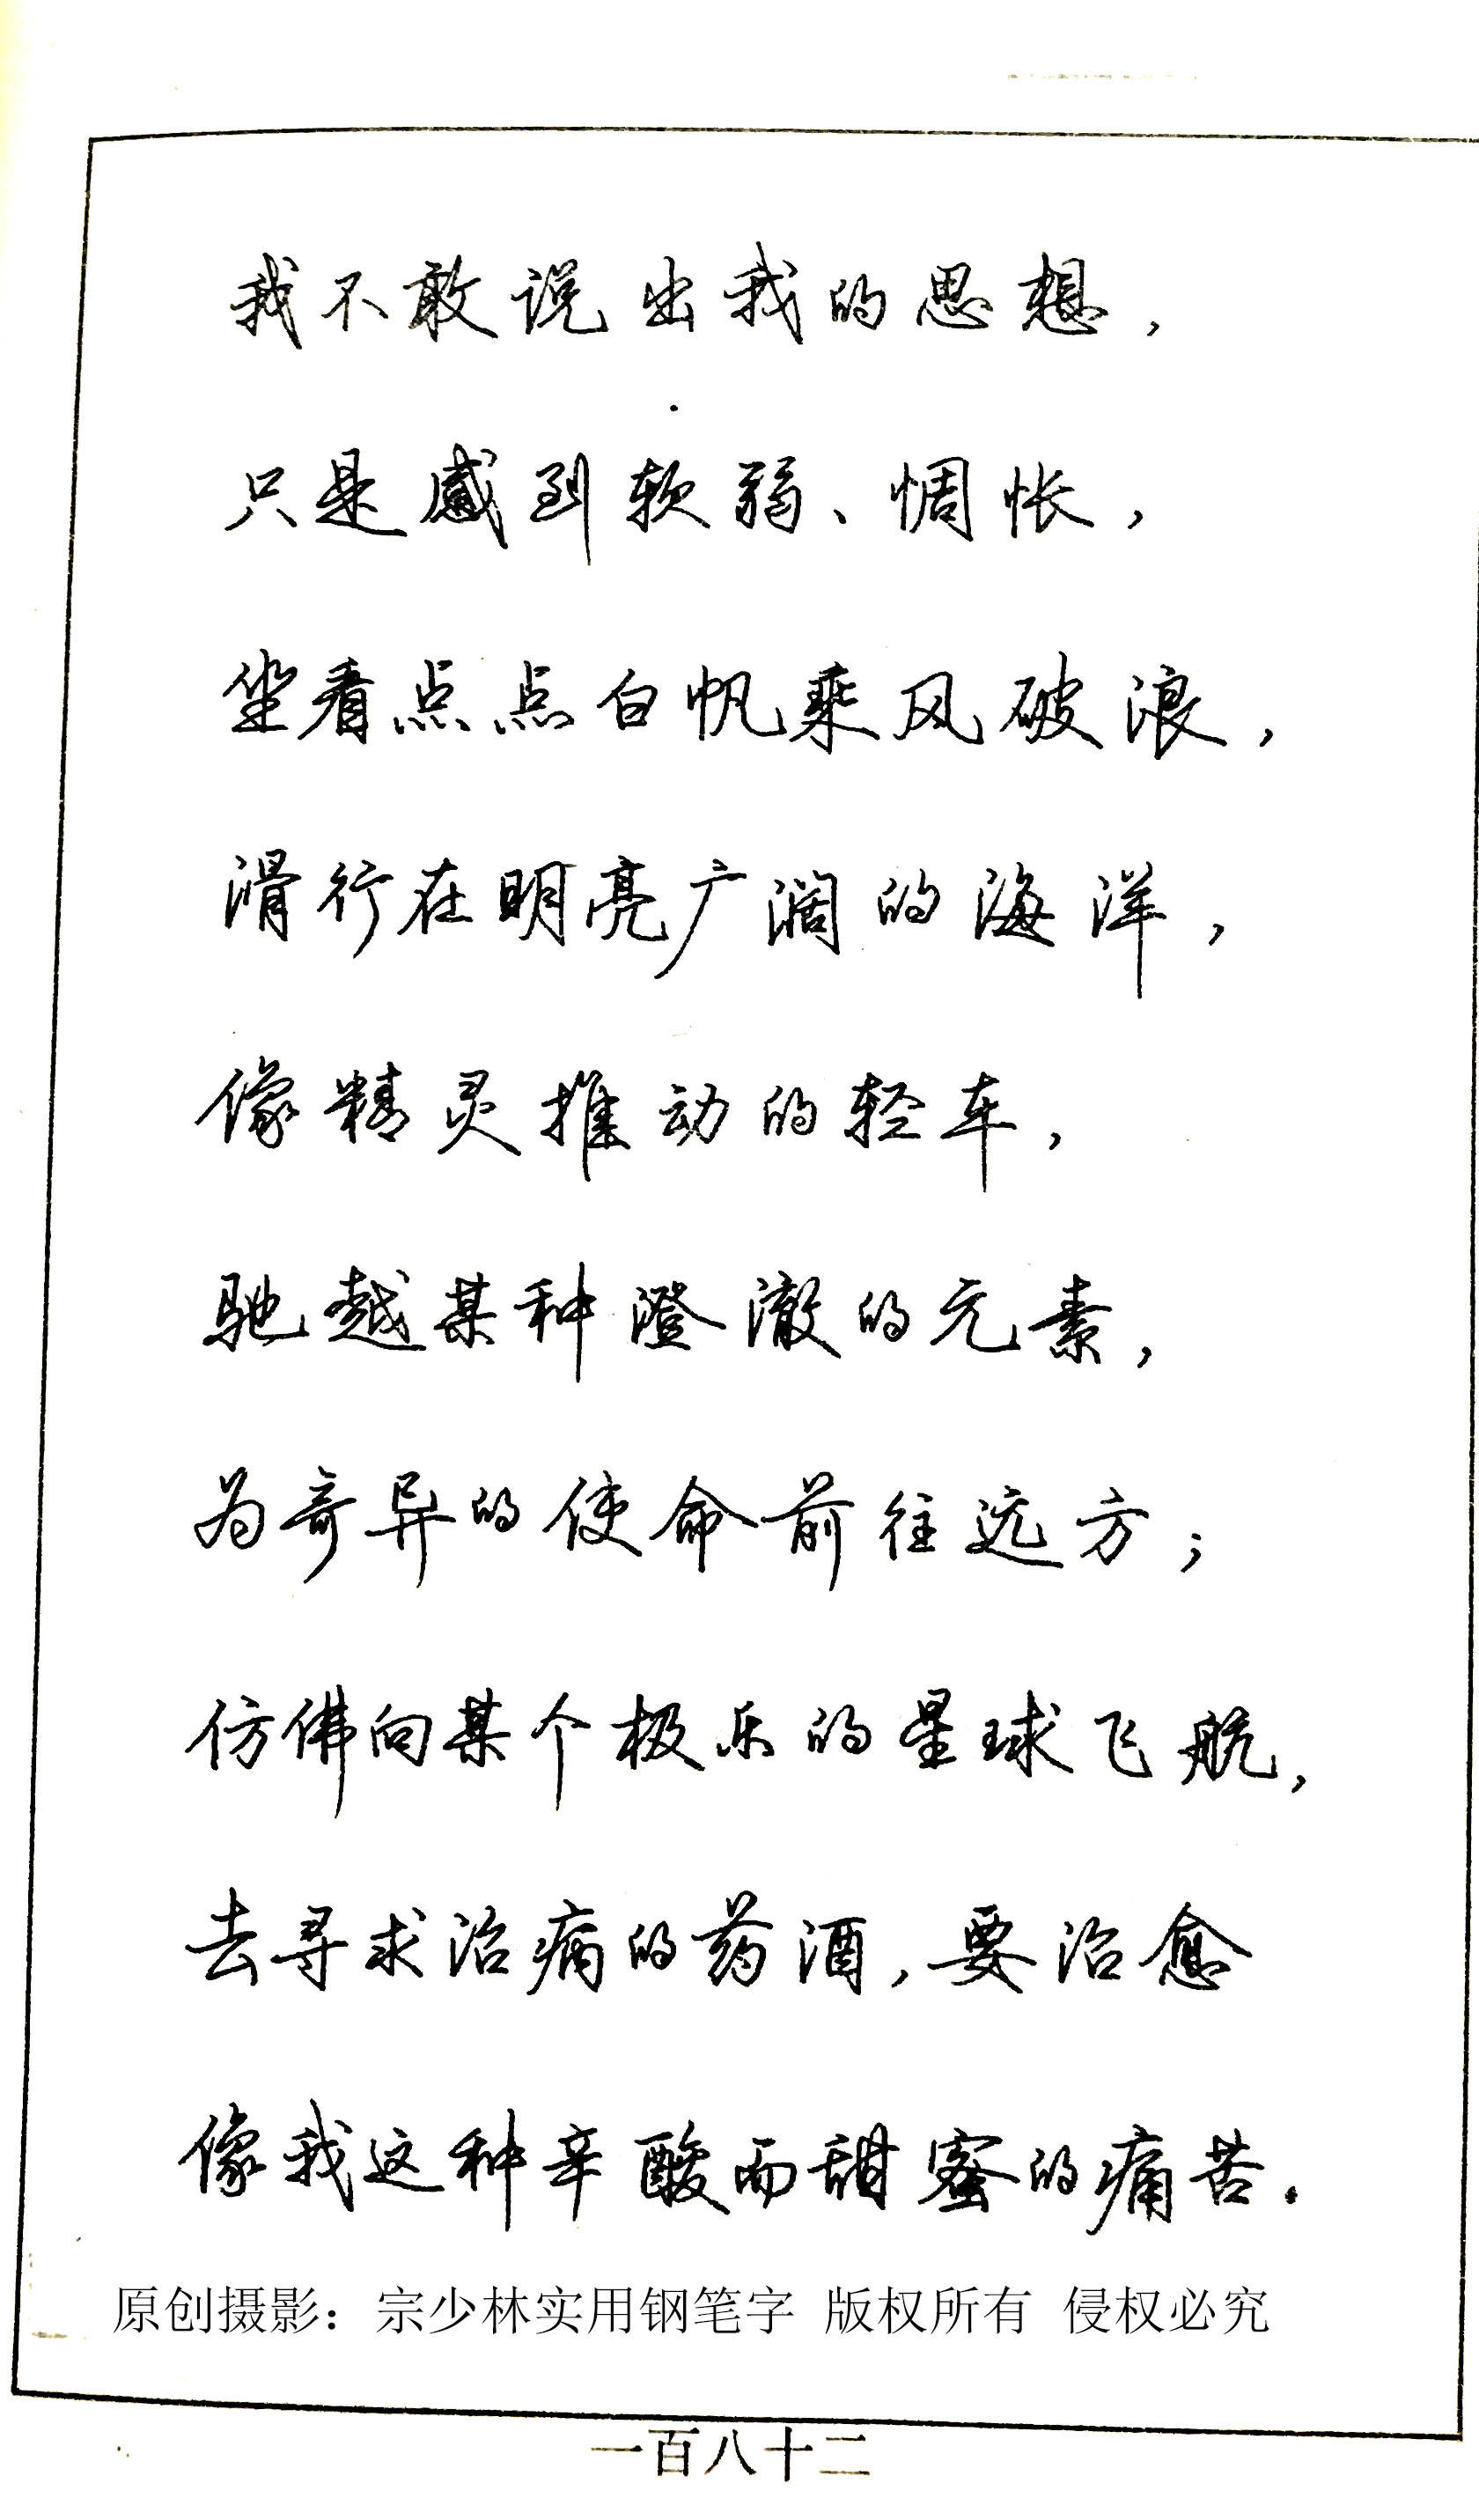 我不敢说出我的思想，
只是感到软弱、惆怅，
坐看点点白帆乘风破浪，
滑行在明亮广阔的海洋，
像精灵推动的轻车，
驰越某种澄澈的元素，
为奇异的使命前往远方；
仿佛向某个极乐的星球飞航，
去寻求治病的药酒，要治愈
像我这种辛酸而甜蜜的痛苦.
原创摄影：宗少林实用钢笔字 版权所有 侵权必究
一百八十二